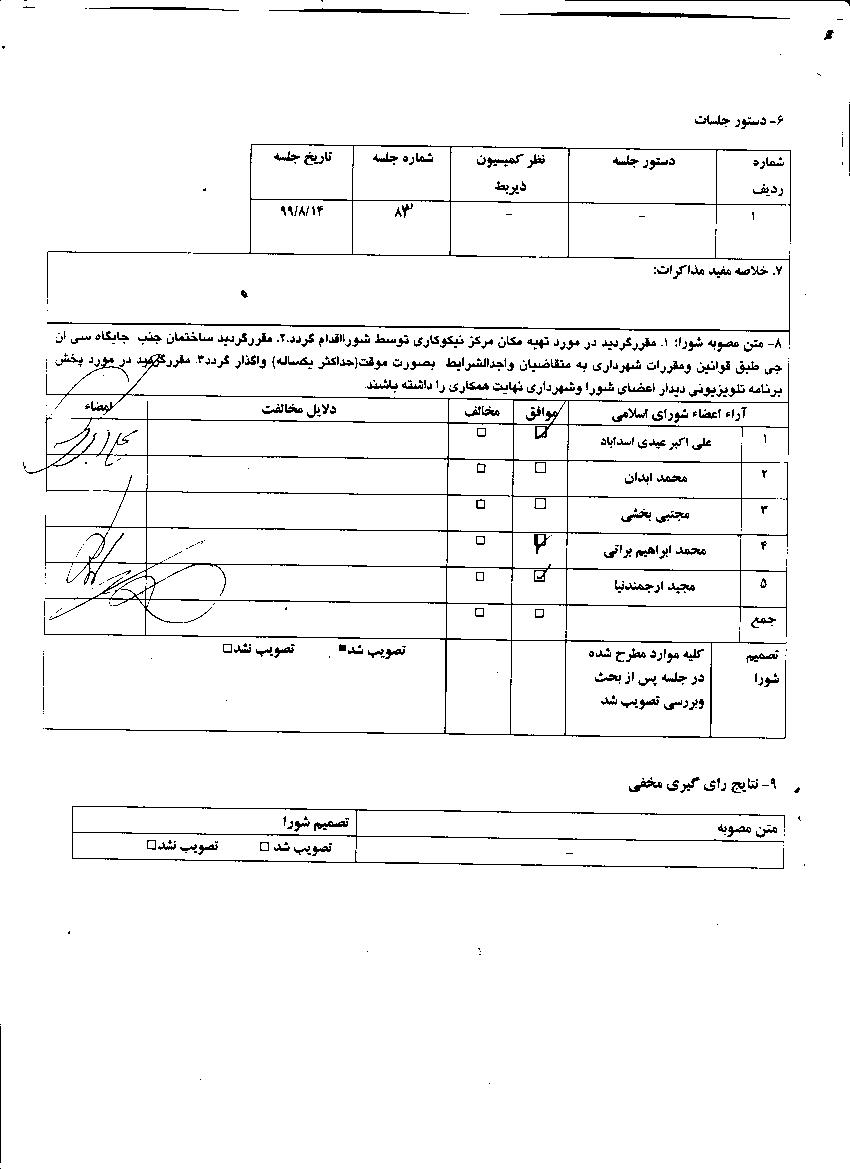 ۶- دستور جلسات
شماره ردیف دستور جلسه نظر کمیسیون ذیربط شماره جلسه تاریخ جلسه
۱ – – ۸۳ ۹۹/۸/۱۴
۷. خلاصه مفید مذاکرات:
۸- متن مصوبه شورا: ۱. مقررگردید در مورد تهیه مکان مرکز نیکوکاری توسط شورااقدام گردد.۲. مقررگردید ساختمان جنب جایگاه سی ان
جی طبق قوانین ومقررات شهرداری به متقاضیان واجدالشرایط بصورت موقت(حداکثر یکساله) واگذار گردد۳. مقررگردید در مورد پخش
برنامه تلویزیونی دیدار اعضای شورا وشهرداری نهایت همکاری را داشته باشند
آراء اعضاء شورای اسلامی موافق مخالف دلایل مخالفت امضاء
۱ علی اکبر عیدی اسدآباد ☑ ☐
۲ محمد ابدان ☐ ☐
۳ مجتبی بخشی ☐ ☐
۴ محمد ابراهیم براتی ☑ ☐
۵ مجید ارجمندنیا ☑ ☐
جمع ☐ ☐
تصمیم شورا کلیه موارد مطرح شده تصویب شد■ تصویب نشد☐
در جلسه پس از بحث
وبررسی تصویب شد
۹- نتایج رای گیری مخفی
متن مصوبه تصمیم شورا
– تصویب شد ☐ تصویب نشد☐